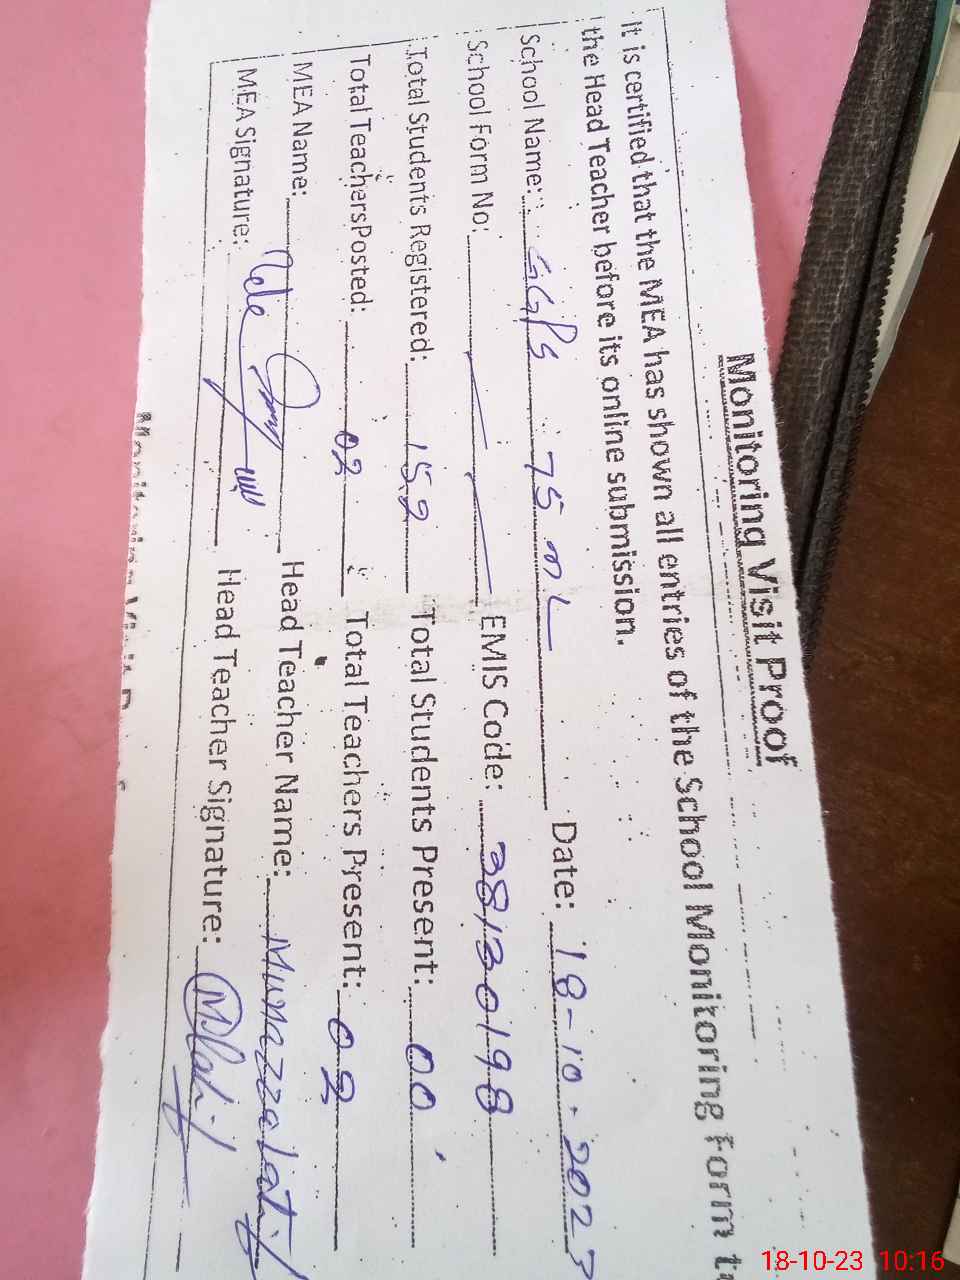 Monitoring Visit Proof
It is certified that the MEA has shown all entries of the School Monitoring Form to
the Head Teacher before its online submission.
School Name: GGPS 75 ML Date: 18-10-2023
School Form No: EMIS Code: 38130198
Total Students Registered: 159 Total Students Present: 00
Total Teachers Posted: 02 Total Teachers Present: 02
MEA Name: Head Teacher Name: Munazza latif
MEA Signature: Head Teacher Signature: M.latif
18-10-23 10:16